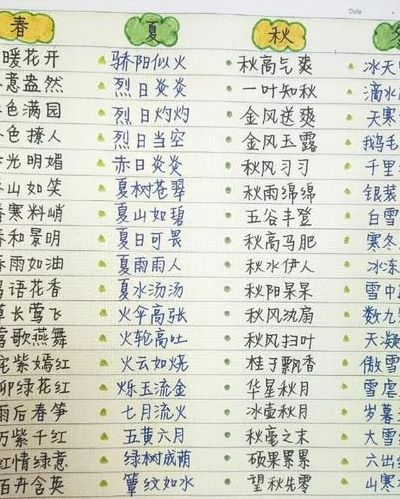 春
暖花开
意盎然
色满园
色撩人
光明媚
山如笑
寒料峭
和景明
雨如油
语花香
长莺飞
歌燕舞
紫嫣红
绿花红
雨后春笋
万紫千红
红情绿意
百卉含英
夏
骄阳似火
烈日炎炎
烈日灼灼
烈日当空
赤日炎炎
夏树苍翠
夏山如碧
夏日可畏
夏雨雨人
夏水汤汤
火伞高张
火轮高吐
火云如烧
烁玉流金
七月流火
五黄六月
绿树成荫
簟纹如水
秋
秋高气爽
一叶知秋
金风送爽
金风玉露
秋风习习
秋雨绵绵
五谷丰登
秋高马肥
秋水伊人
秋阳杲杲
秋风纨扇
秋风扫叶
桂子飘香
华星秋月
冰壶秋月
秋毫之末
硕果累累
望秋先零
Date
冰天
滴水
天寒
鹅毛
千里
银装
白雪
寒冬
冰冻
雪中
数九
天凝
傲雪
雪虐
岁暮
大雪
山寒